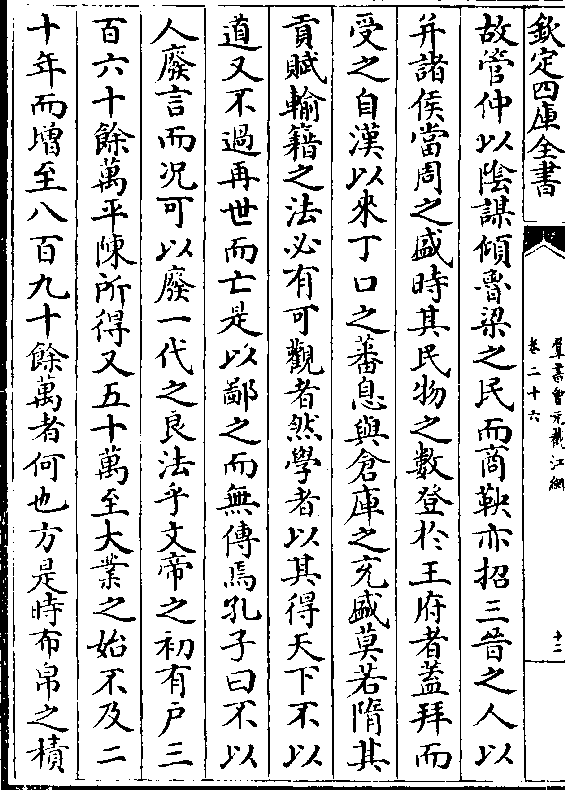 欽定四庫全書
羣書會元截江網
卷二十六
十二
故管仲以陰謀傾魯梁之民而商鞅亦招三晉之人以
并諸侯當周之盛時其民物之數登於王府者蓋拜而
受之自漢以來丁口之蕃息與倉庫之充盛莫若隋其
貢賦輸籍之法必有可觀者然學者以其得天下不以
道又不過再世而亡是以鄙之而無傳焉孔子曰不以
人廢言而况可以廢一代之良法乎文帝之初有户三
百六十餘萬平陳所得又五十萬至大業之始不及二
十年而增至八百九十餘萬者何也方是時布帛之積